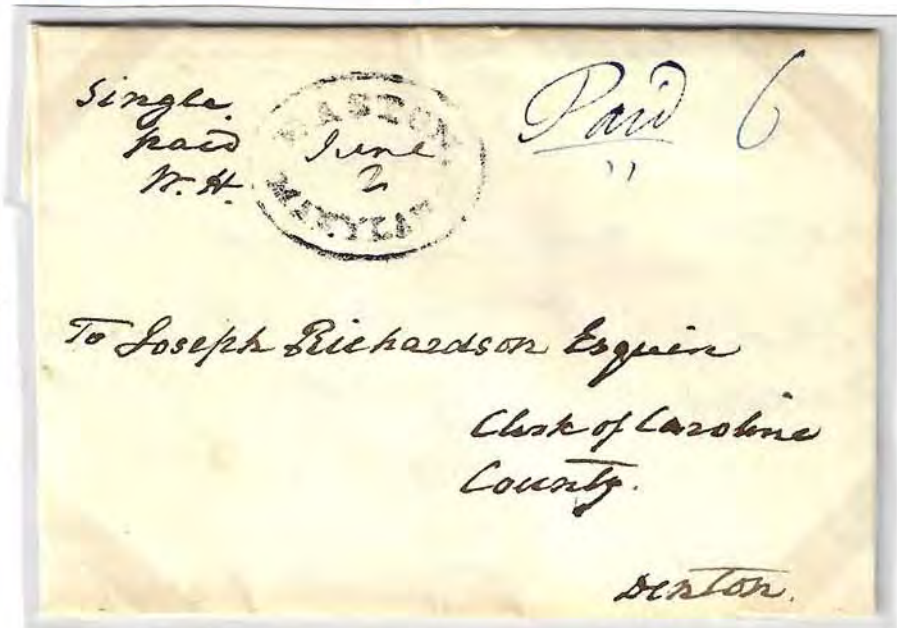 Single
paid
W. H.
EASTON
June
2
MARYLAND
Paid 6
To Joseph Richardson Esquire
Clerk of Caroline
County.
Denton.